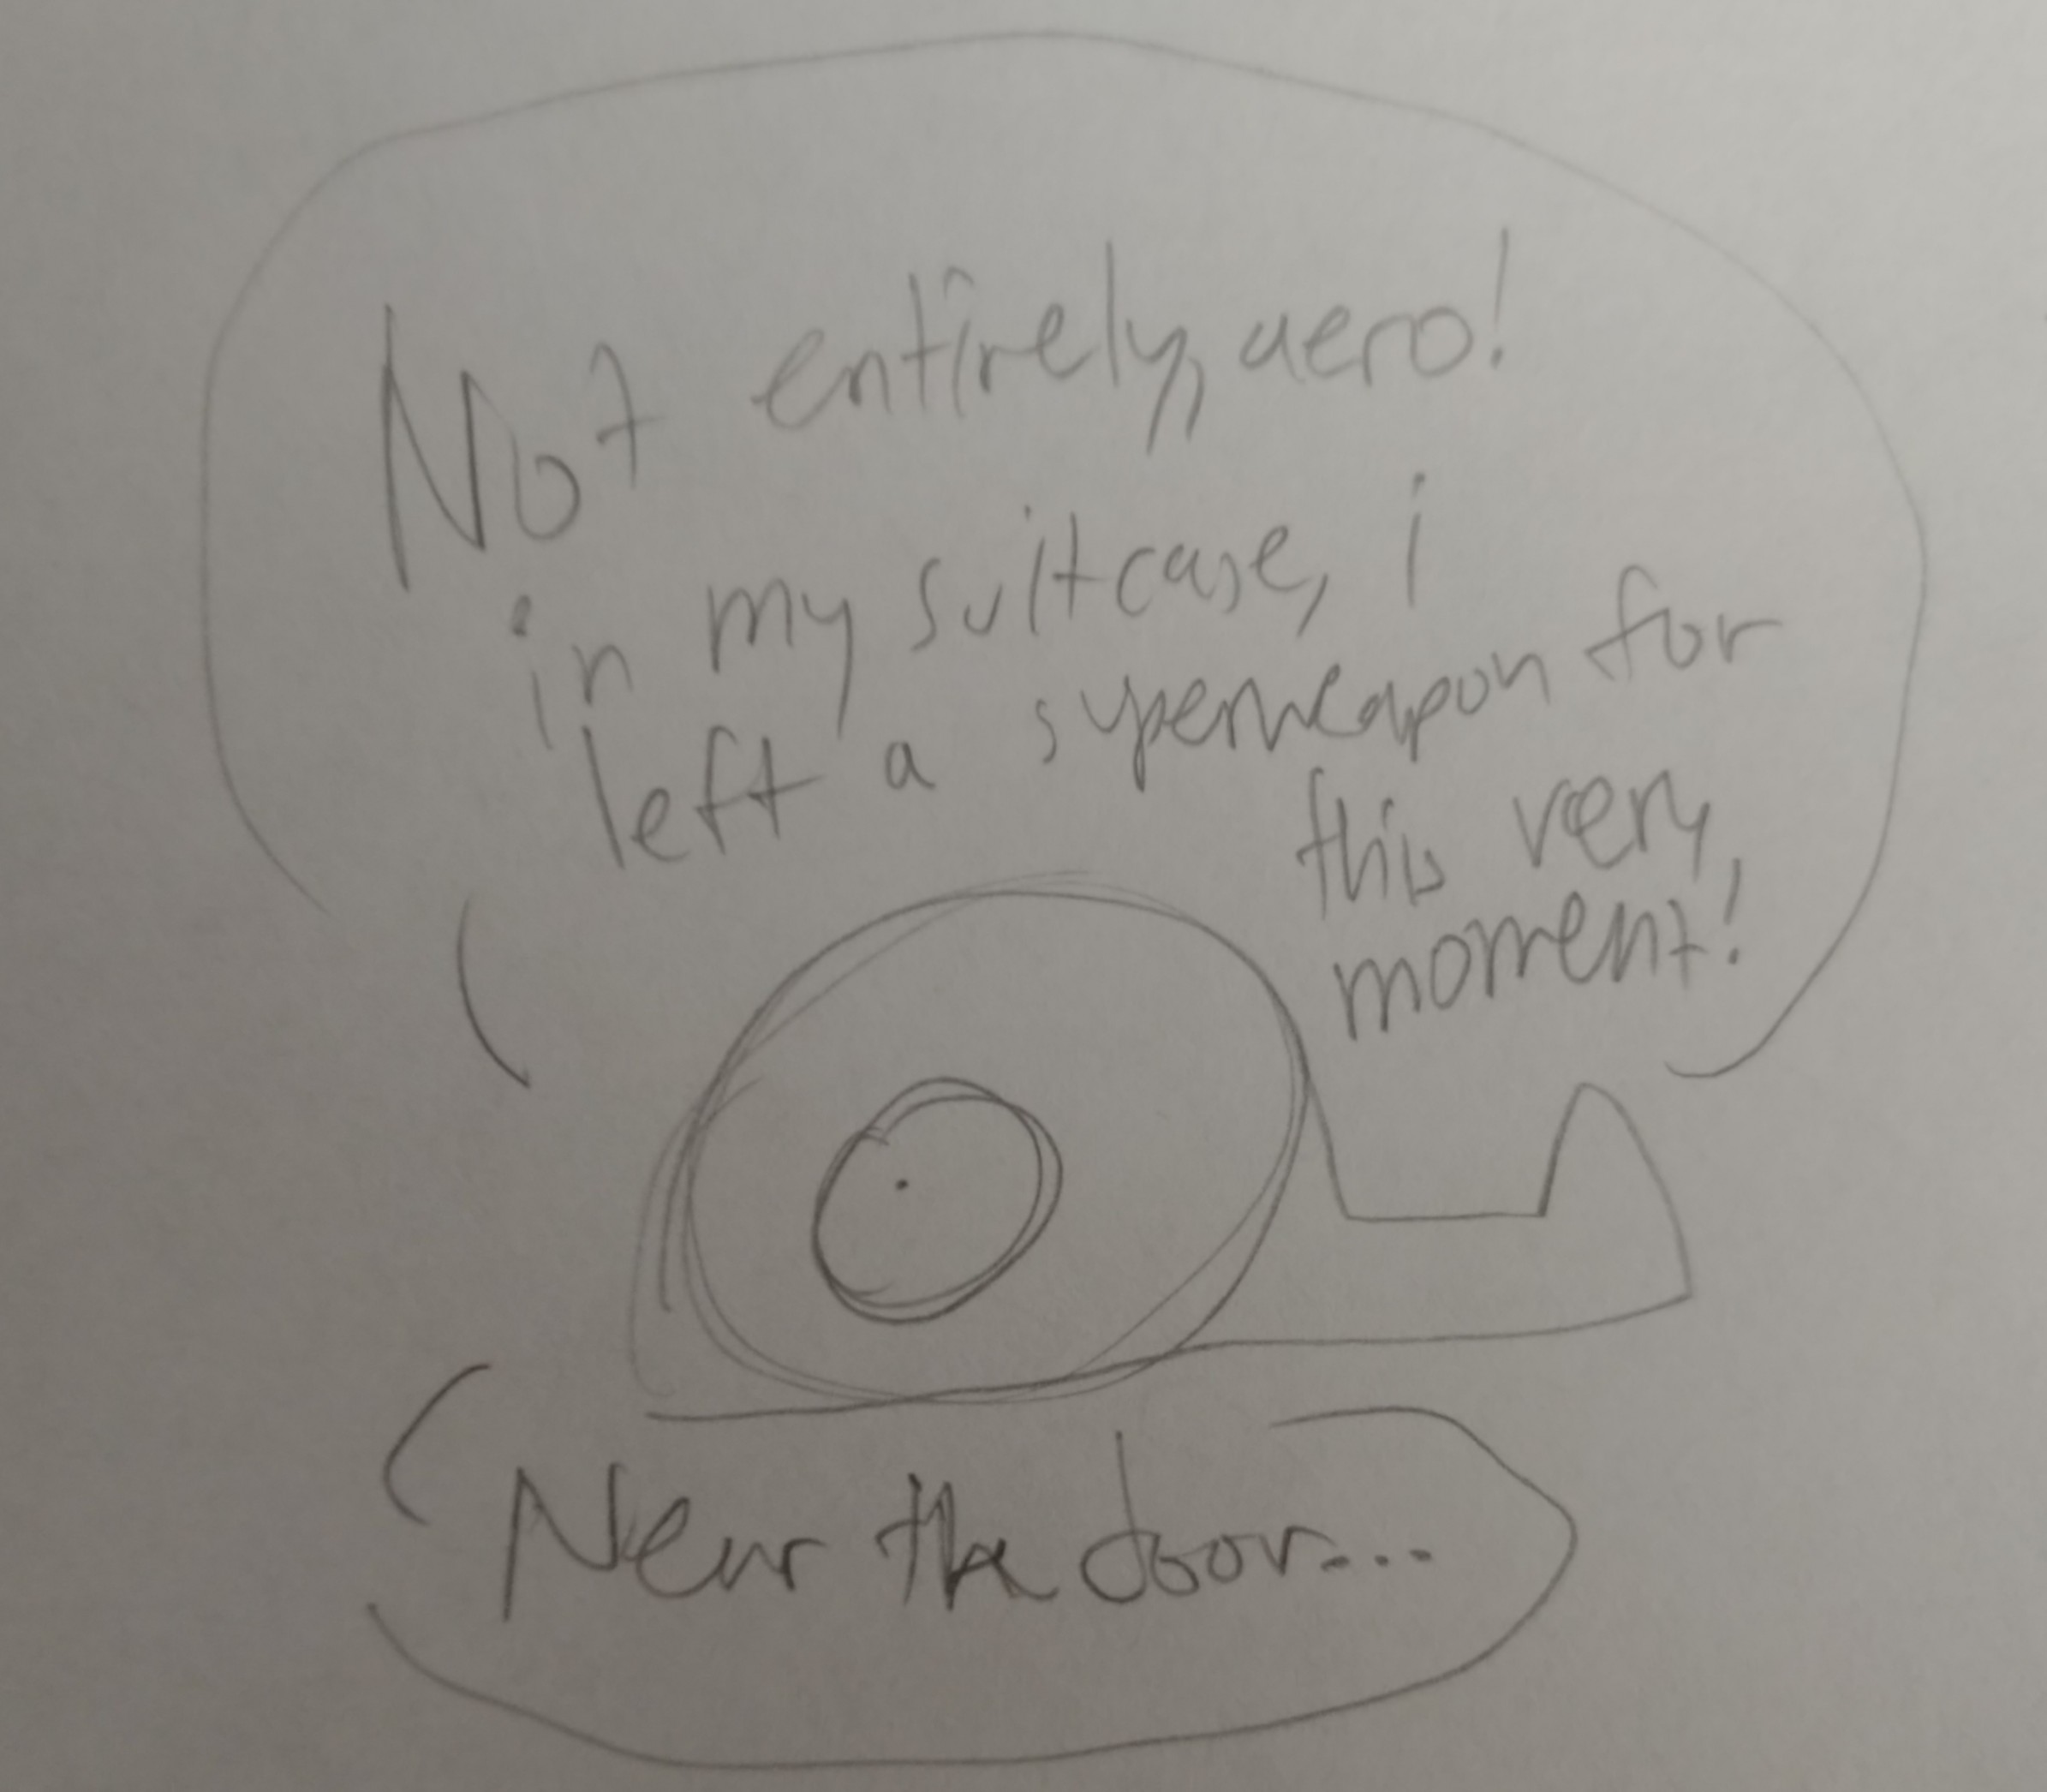 Not entirely, aero!
in my suitcase, i
left a superweapon for
this very
moment!
Near the door...